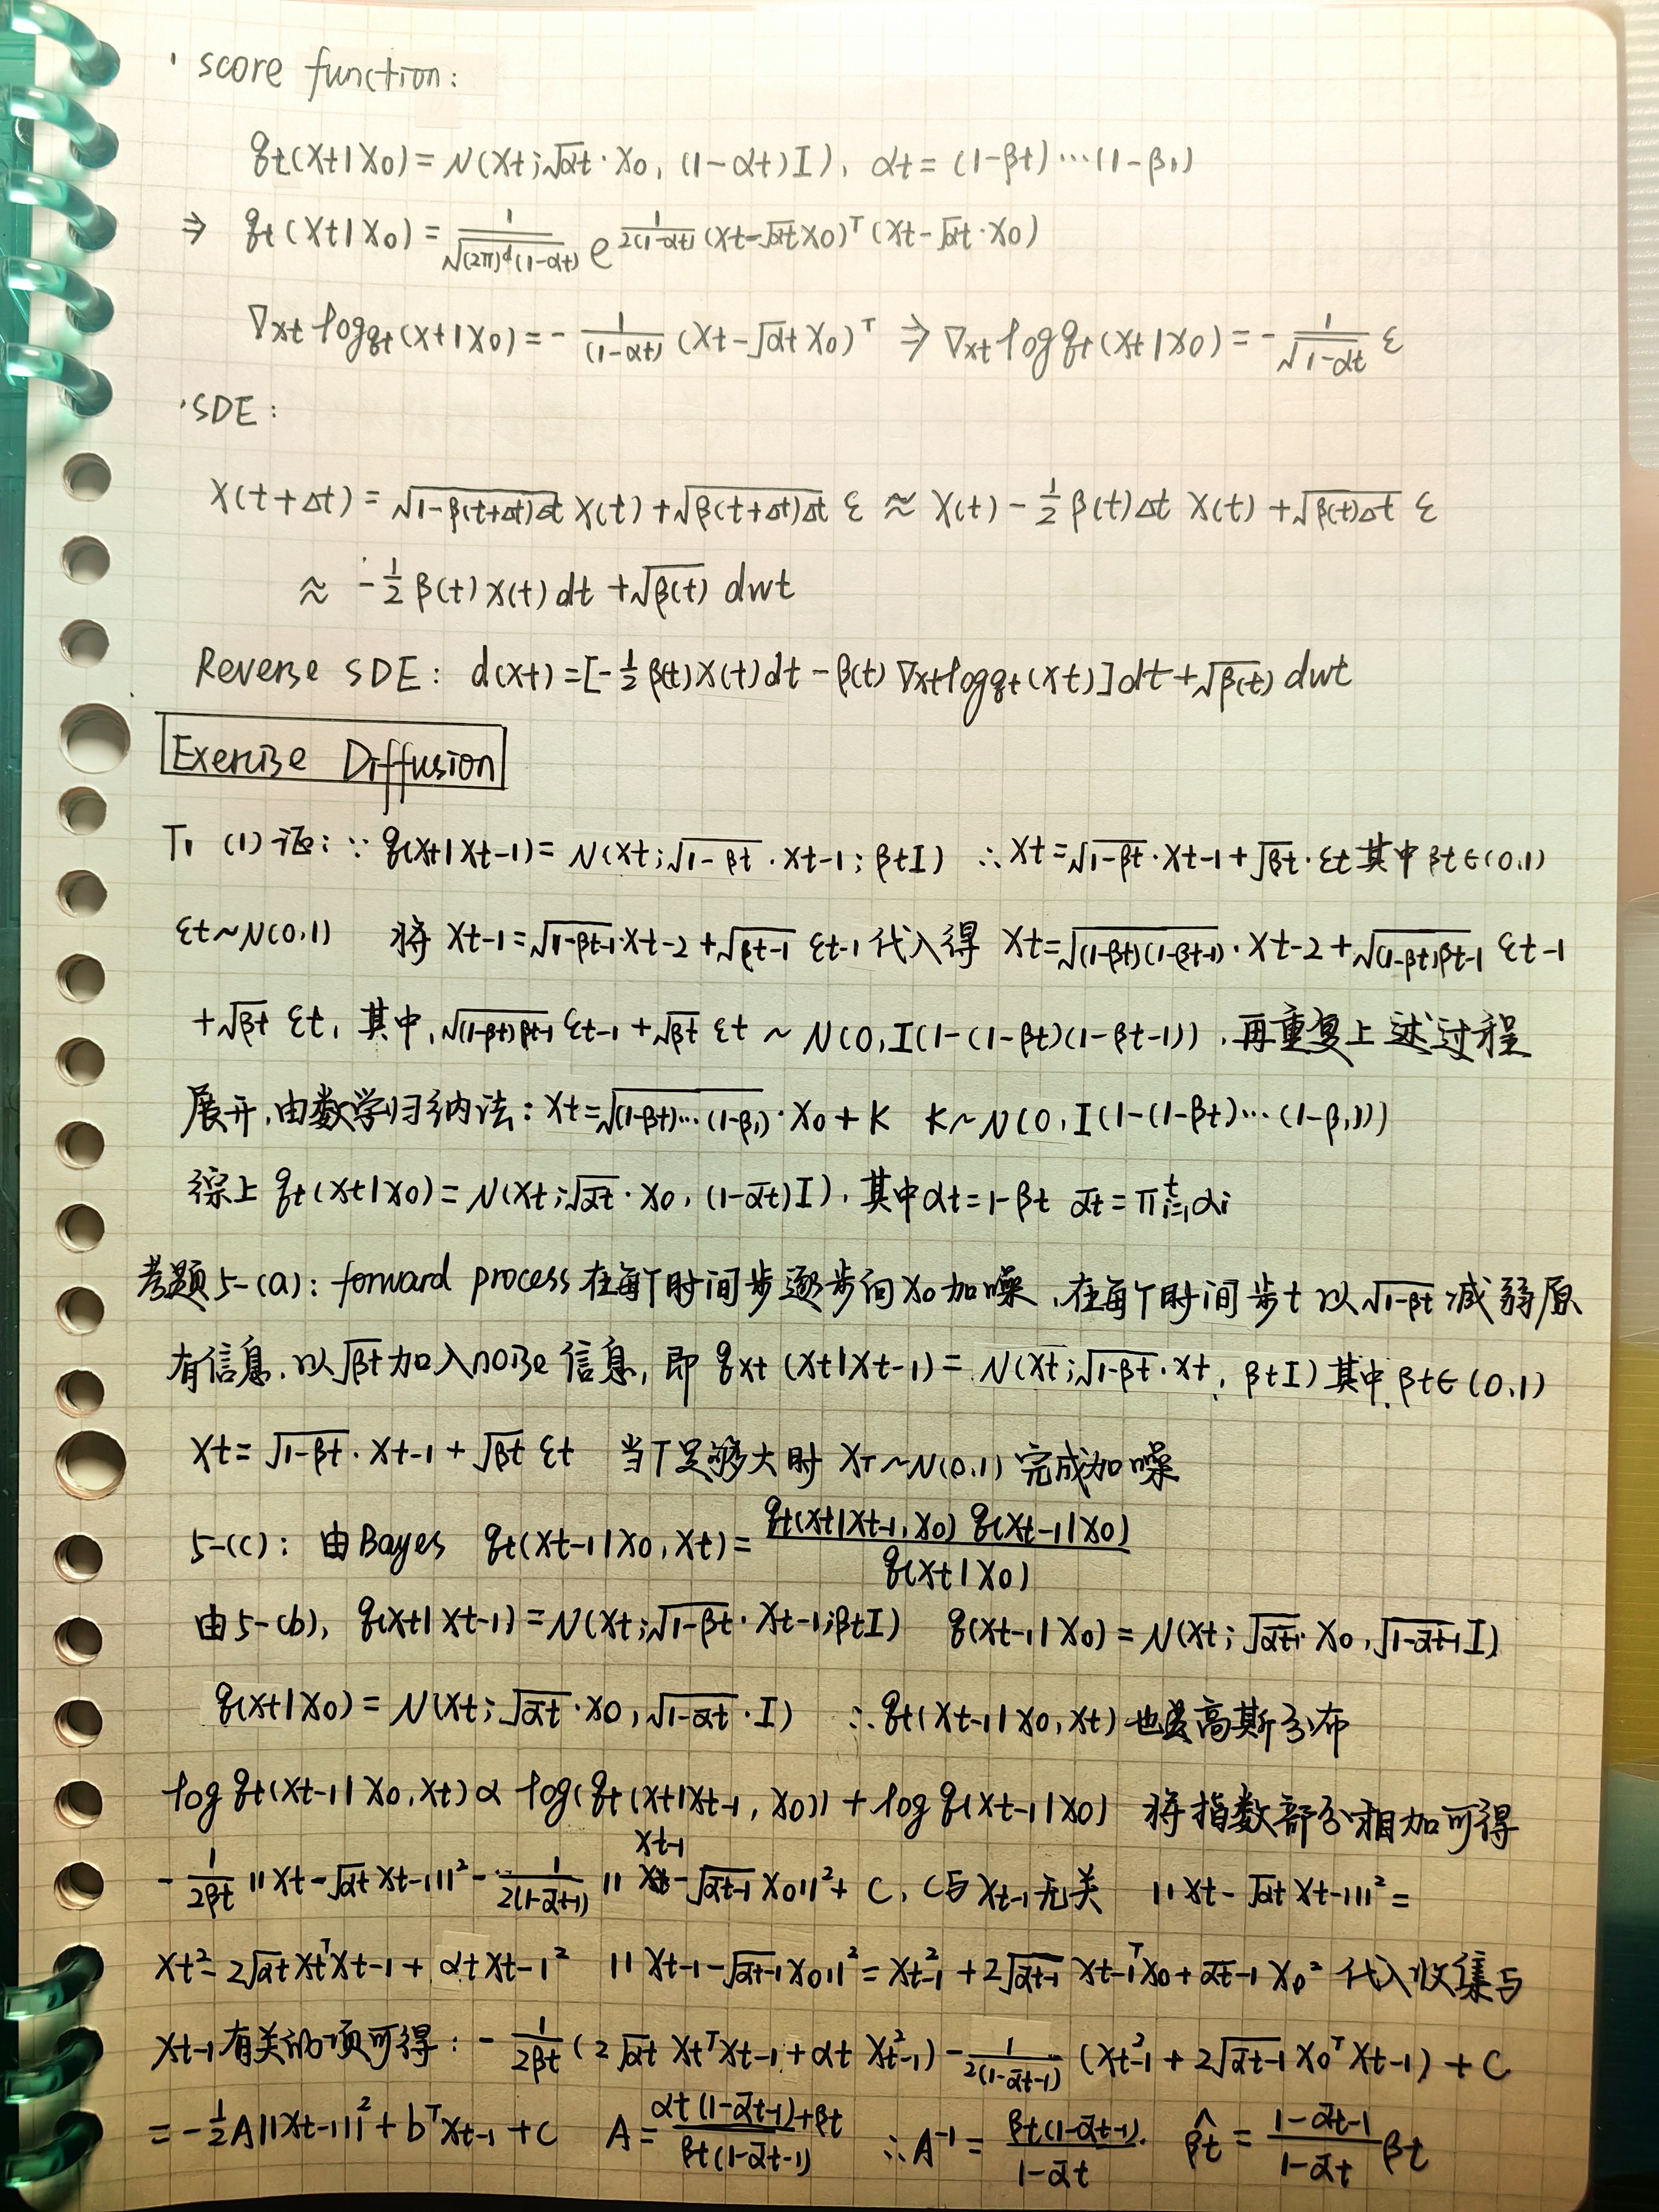 · score function:
qt(xt|x0) = N(xt; √αt · x0, (1-αt)I), αt = (1-βt)···(1-β1)
⇒ qt(xt|x0) = 1/√((2π)^d(1-αt)) e^{1/(2(1-αt)) (xt-√αt x0)^T (xt-√αt · x0)}
∇xt log qt(xt|x0) = - 1/(1-αt) (xt-√αt x0)^T ⇒ ∇xt log qt(xt|x0) = - 1/√(1-αt) ε
·SDE:
x(t+Δt) = √(1-β(t+Δt)Δt) x(t) + √(β(t+Δt)Δt) ε ≈ x(t) - 1/2 β(t)Δt x(t) + √(β(t)Δt) ε
≈ -1/2 β(t) x(t) dt + √β(t) dwt
Reverse SDE: d(xt) = [-1/2 β(t)x(t)dt - β(t) ∇xt log qt(xt)]dt + √β(t) dwt
Exercise Diffusion
T1 (1) 证: ∵ q(xt|xt-1) = N(xt; √(1-βt) · xt-1; βtI) ∴ xt = √(1-βt) · xt-1 + √βt · εt 其中 βt∈(0,1)
εt~N(0,1) 将 xt-1 = √(1-βt-1) · xt-2 + √βt-1 εt-1 代入得 xt = √((1-βt)(1-βt-1)) · xt-2 + √((1-βt)βt-1) εt-1
+ √βt εt, 其中, √((1-βt)βt-1) εt-1 + √βt εt ~ N(0, I(1-(1-βt)(1-βt-1)), 再重复上述过程
展开, 由数学归纳法: xt = √((1-βt)···(1-β1)) · x0 + K K~N(0, I(1-(1-βt)···(1-β1)))
综上 qt(xt|x0) = N(xt; √ᾱt · x0, (1-ᾱt)I), 其中 αt = 1-βt ᾱt = Π_{i=1}^t αi
考题5-(a): forward process 在每个时间步逐步向 x0 加噪, 在每个时间步 t 以 √(1-βt) 减弱原
有信息, 以 √βt 加入 noise 信息, 即 qxt (xt|xt-1) = N(xt; √(1-βt) · xt, βtI) 其中 βt∈(0,1)
xt = √(1-βt) · xt-1 + √βt εt 当T足够大时 xT~N(0,1) 完成加噪
5-(c): 由Bayes qt(xt-1|x0, xt) = qt(xt|xt-1, x0) q(xt-1|x0) / q(xt|x0)
由5-(b), q(xt|xt-1) = N(xt; √(1-βt) · xt-1; βtI) q(xt-1|x0) = N(xt; √ᾱt-1 · x0, √(1-ᾱt-1) I)
q(xt|x0) = N(xt; √ᾱt · x0, √(1-ᾱt) · I) ∴ qt(xt-1|x0, xt) 也是高斯分布
log qt(xt-1|x0, xt) ∝ log(qt(xt|xt-1, x0)) + log q(xt-1|x0) 将指数部分相加可得
- 1/(2βt) ||xt-√αt xt-1||² - 1/(2(1-ᾱt-1)) ||xt-1-√ᾱt-1 x0||² + C, C与 xt-1 无关 ||xt-√αt xt-1||² =
xt² - 2√αt xt^T xt-1 + αt xt-1² ||xt-1-√ᾱt-1 x0||² = xt-1² + 2√ᾱt-1 xt-1^T x0 + ᾱt-1 x0² 代入收集与
xt-1 有关的项可得: - 1/(2βt) (2√αt xt^T xt-1 + αt xt-1²) - 1/(2(1-ᾱt-1)) (xt-1² + 2√ᾱt-1 x0^T xt-1) + C
= -1/2 A||xt-1||² + b^T xt-1 + C A = (αt(1-ᾱt-1)+βt)/(βt(1-ᾱt-1)) ∴ A^-1 = βt(1-ᾱt-1)/(1-ᾱt). β̂t = (1-ᾱt-1)/(1-ᾱt) βt